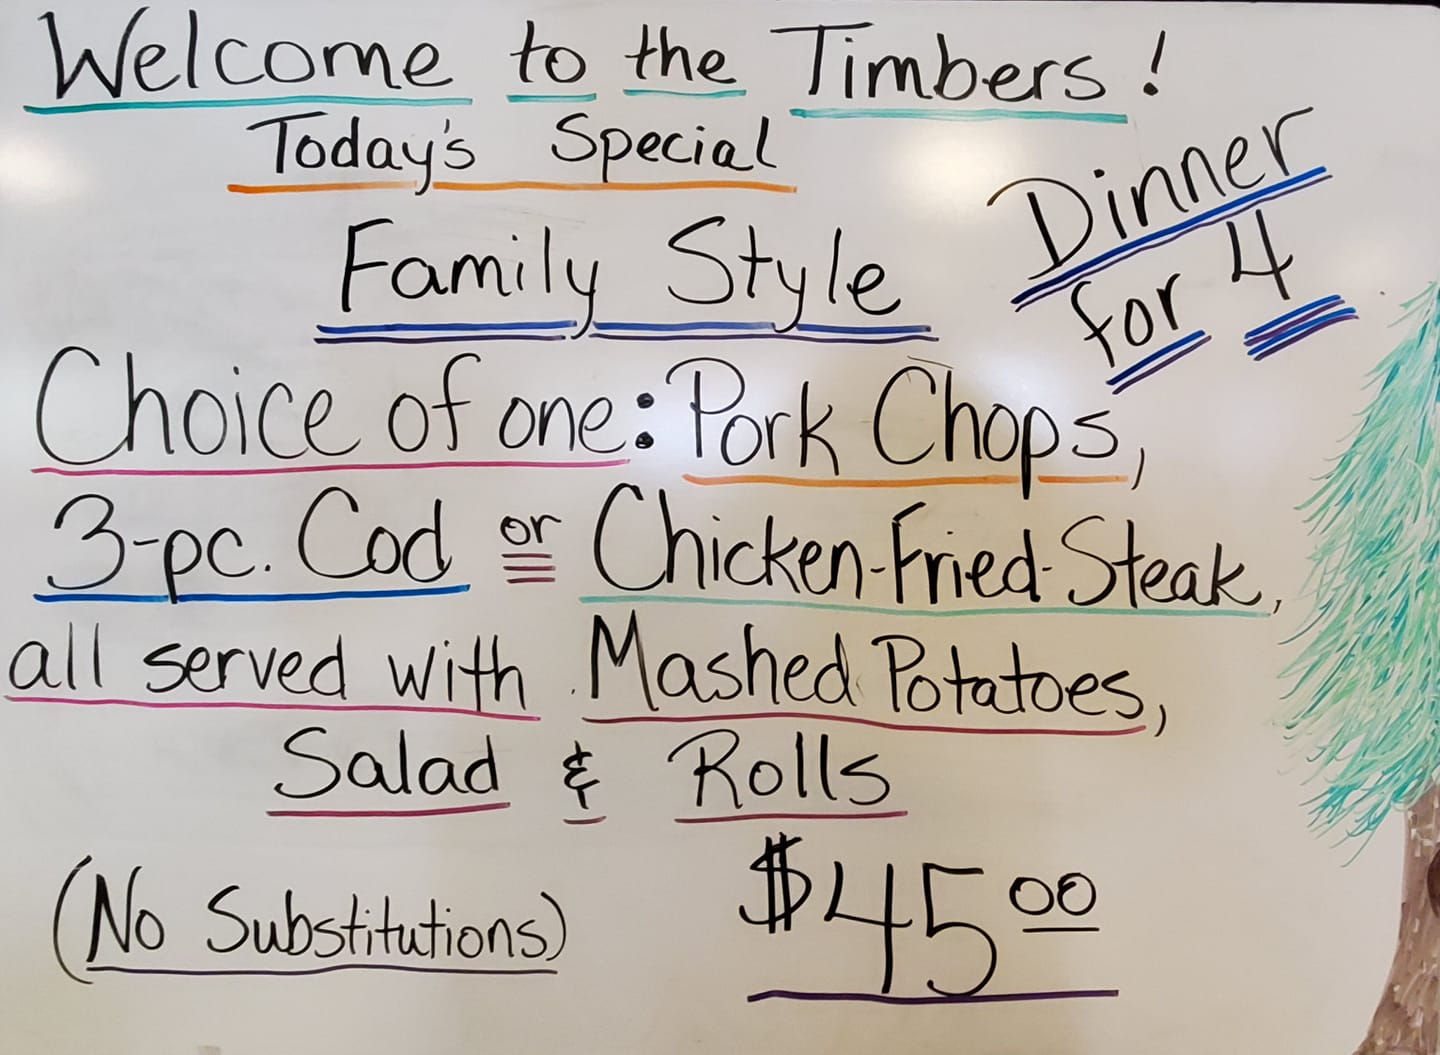 Welcome to the Timbers!
Today's Special
Dinner
for 4
Family Style
Choice of one: Pork Chops,
3-pc. Cod or Chicken-Fried-Steak,
all served with Mashed Potatoes,
Salad & Rolls
(No Substitutions)
$45.00